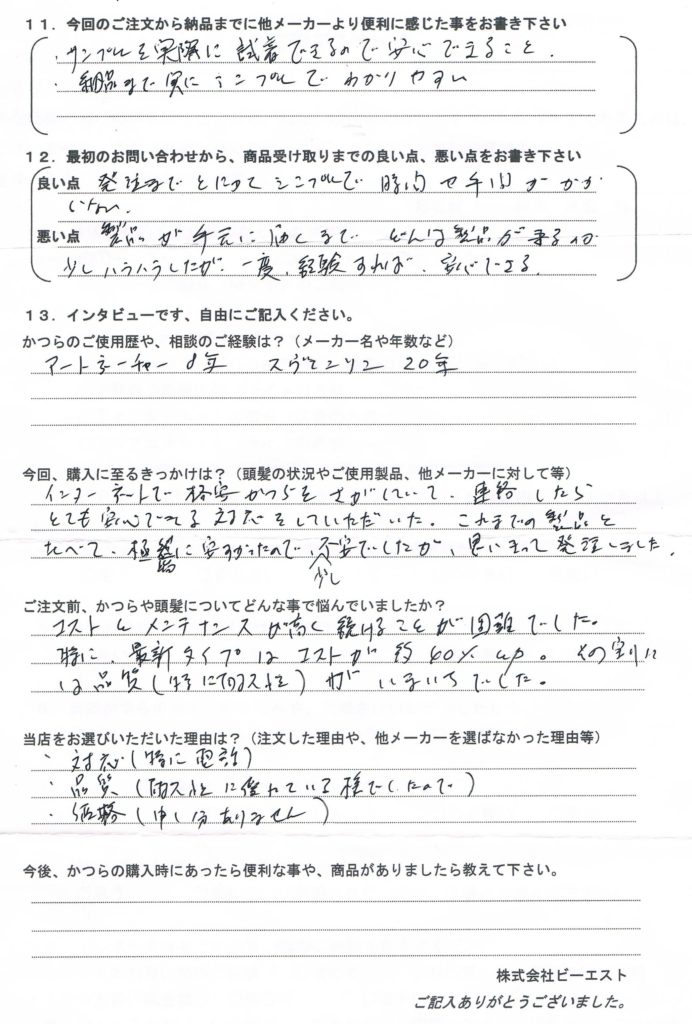 １１．今回のご注文から納品までに他メーカーより便利に感じた事をお書き下さい
・サンプルを実際に試着できるので安心できること．
・納品まで実にシンプルでわかりやすい
１２．最初のお問い合わせから、商品受け取りまでの良い点、悪い点をお書き下さい
良い点 発注までとにかくシンプルで 時間や手間がかか
らない．
悪い点 製品が手元に届くまで どんな製品が来るのか
少しハラハラしたが、一度、経験すれば、安心できる．
１３．インタビューです、自由にご記入ください。
かつらのご使用歴や、相談のご経験は？（メーカー名や年数など）
アートネーチャー 8年 スヴェンソン 20年
今回、購入に至るきっかけは？（頭髪の状況やご使用製品、他メーカーに対して等）
インターネットで格安かつらをさがしていて、連絡したら
とても安心できる対応をしていただいた．これまでの製品と
比べて、極端に安すかったので、不安でしたが、思いきって発注しました．
少し
ご注文前、かつらや頭髪についてどんな事で悩んでいましたか？
コストとメンテナンスが高く続けることが困難でした。
特に、最新タイプはコストが約40％up。その割に
は品質（特に耐久性）がいまいちでした。
当店をお選びいただいた理由は？（注文した理由や、他メーカーを選ばなかった理由等）
・対応（特に電話）
・品質（耐久性に優れている様でしたので）
・価格（申し分ありません）
今後、かつらの購入時にあったら便利な事や、商品がありましたら教えて下さい。
株式会社ビーエスト
ご記入ありがとうございました。